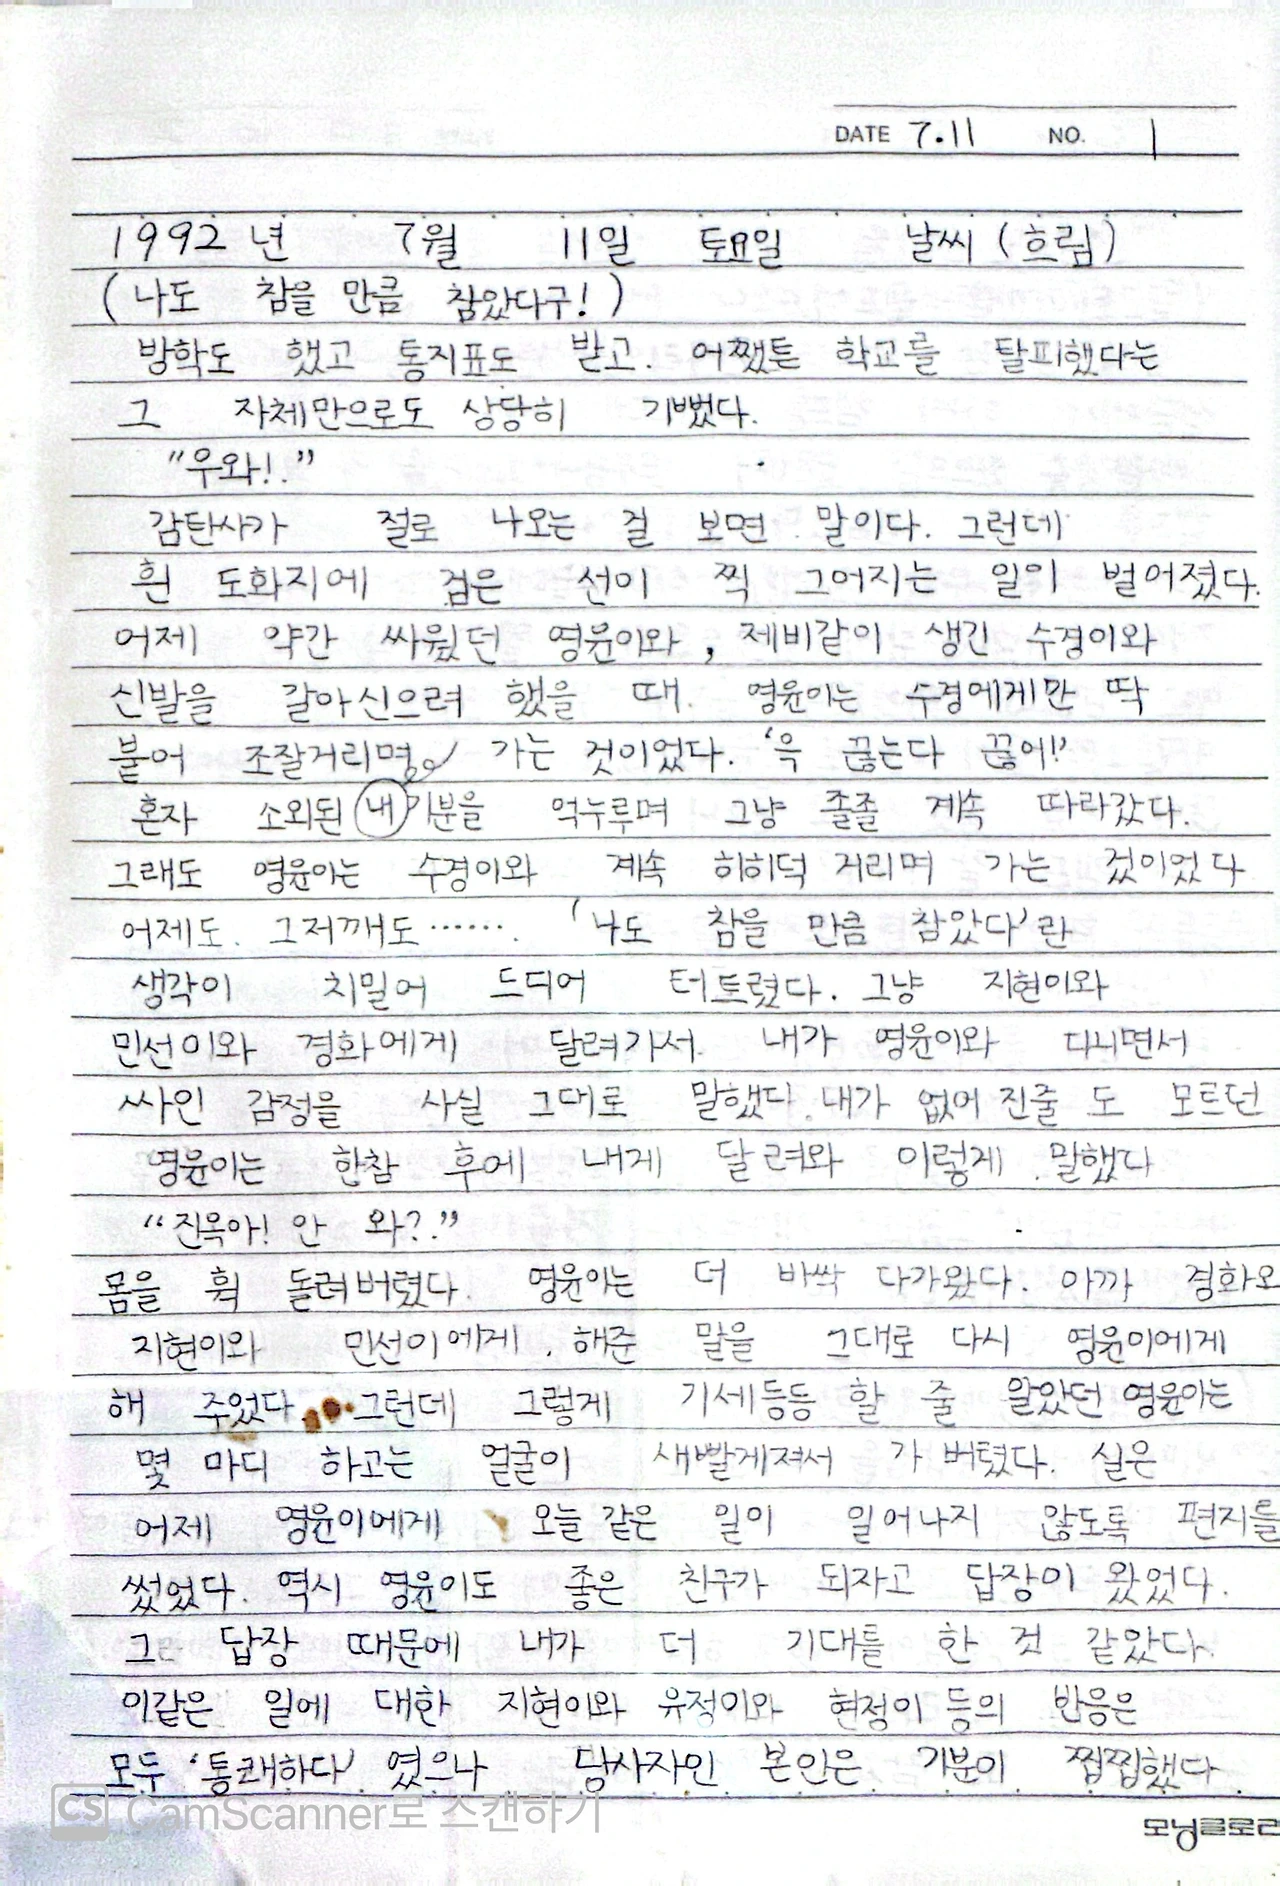 DATE 7.11 NO. 1
1992년 7월 11일 토요일 날씨 (흐림)
(나도 참을 만큼 참았다구!)
방학도 했고 통지표도 받고. 어쨌튼 학교를 탈피했다는
그 자체만으로도 상당히 기뻤다.
"우와!."
감탄사가 절로 나오는 걸 보면 말이다. 그런데
흰 도화지에 검은 선이 찍 그어지는 일이 벌어졌다.
어제 약간 싸웠던 영윤이와, 제비같이 생긴 수경이와
신발을 갈아신으려 했을 때. 영윤이는 수경에게만 딱
붙어 조잘거리며 가는 것이었다. '윽 끊는다 끊어!'
혼자 소외된 내 기분을 억누루며 그냥 졸졸 계속 따라갔다.
그래도 영윤이는 수경이와 계속 히히덕 거리며 가는 것이었다
어제도. 그저께도……. '나도 참을 만큼 참았다'란
생각이 치밀어 드디어 터트렸다. 그냥 지현이와
민선이와 경화에게 달려가서. 내가 영윤이와 다니면서
싸인 감정을 사실 그대로 말했다. 내가 없어진줄 도 모르던
영윤이는 한참 후에 내게 달려와 이렇게 말했다
"진옥아! 안 와?."
몸을 휙 돌려버렸다. 영윤이는 더 바싹 다가왔다. 아까 경화와
지현이와 민선이에게. 해준 말을 그대로 다시 영윤이에게
해 주었다. 그런데 그렇게 기세등등 할 줄 알았던 영윤이는
몇 마디 하고는 얼굴이 새빨게져서 가 버렸다. 실은
어제 영윤이에게 오늘 같은 일이 일어나지 않도록 편지를
썼었다. 역시 영윤이도 좋은 친구가 되자고 답장이 왔었다.
그 답장 때문에 내가 더 기대를 한 것 같았다.
이같은 일에 대한 지현이와 유정이와 현정이 등의 반응은
모두 '통쾌하다' 였으나 당사자인 본인은 기분이 찝찝했다
CS CamScanner로 스캔하기
모닝글로리